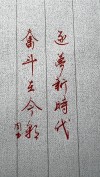 逐夢新時代
奮斗在今朝